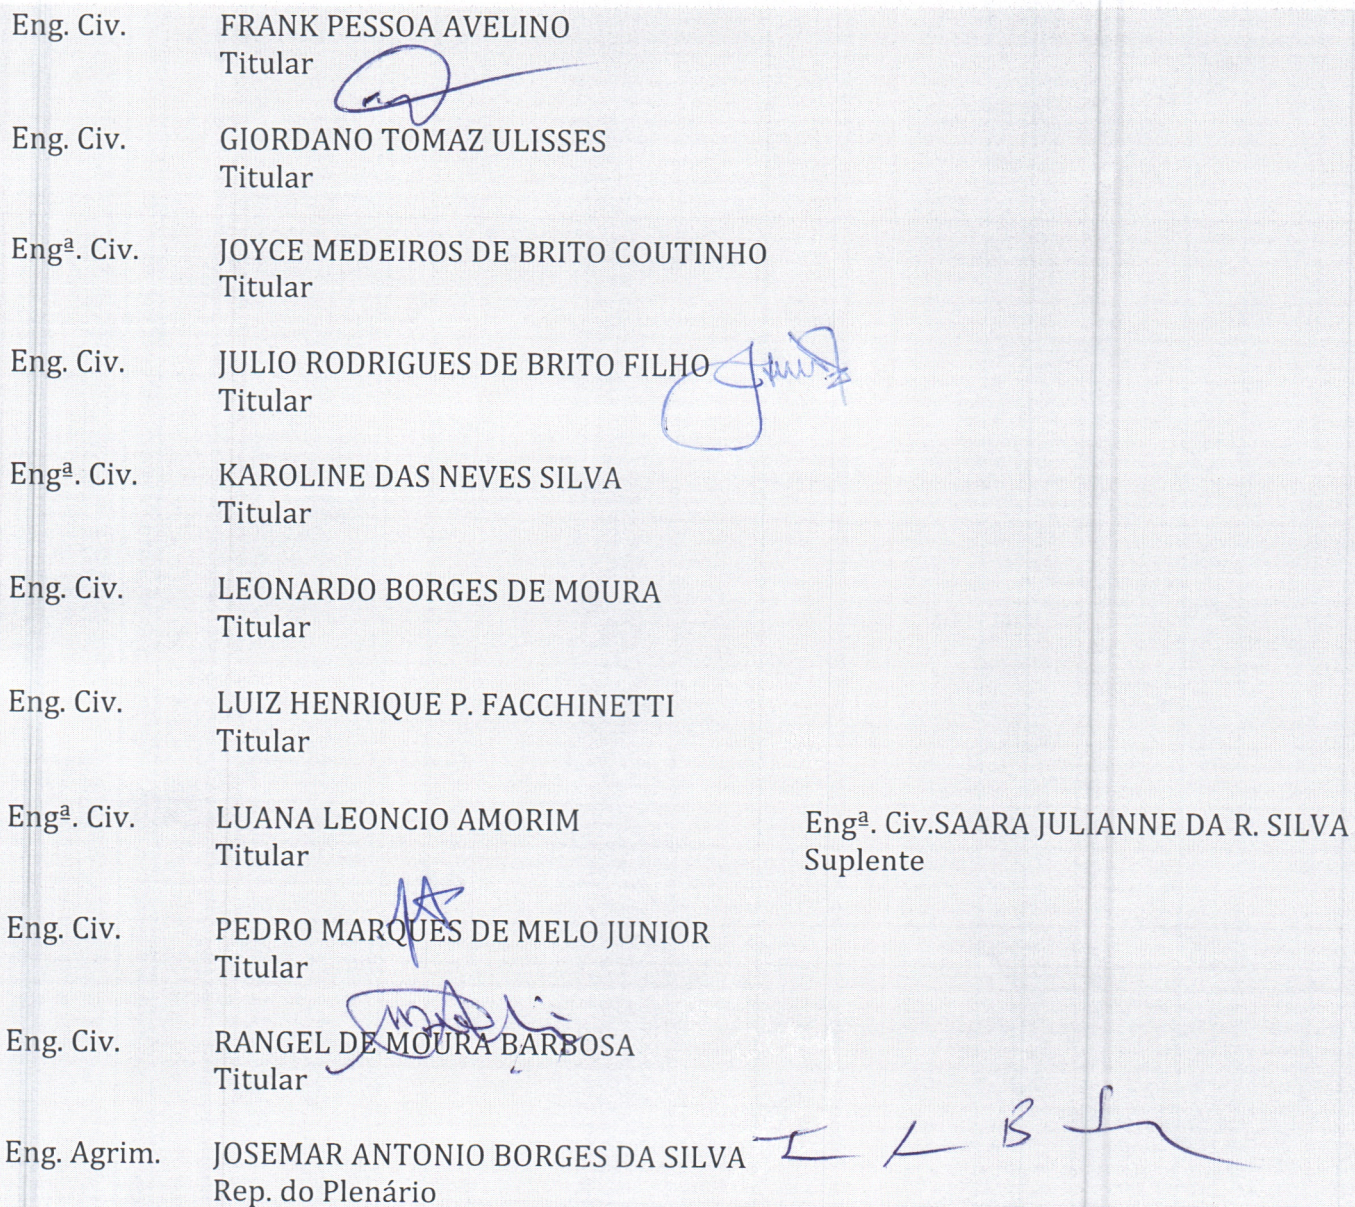 Eng. Civ. FRANK PESSOA AVELINO
Titular
Eng. Civ. GIORDANO TOMAZ ULISSES
Titular
Engª. Civ. JOYCE MEDEIROS DE BRITO COUTINHO
Titular
Eng. Civ. JULIO RODRIGUES DE BRITO FILHO
Titular
Engª. Civ. KAROLINE DAS NEVES SILVA
Titular
Eng. Civ. LEONARDO BORGES DE MOURA
Titular
Eng. Civ. LUIZ HENRIQUE P. FACCHINETTI
Titular
Engª. Civ. LUANA LEONCIO AMORIM Engª. Civ.SAARA JULIANNE DA R. SILVA
Titular Suplente
Eng. Civ. PEDRO MARQUES DE MELO JUNIOR
Titular
Eng. Civ. RANGEL DE MOURA BARBOSA
Titular
Eng. Agrim. JOSEMAR ANTONIO BORGES DA SILVA
Rep. do Plenário